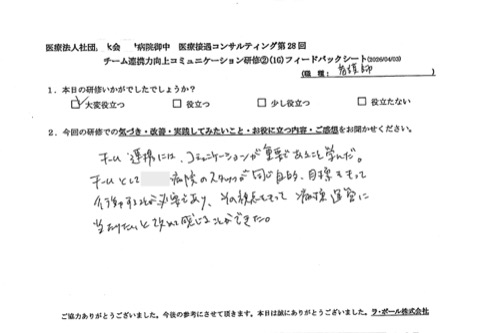 医療法人社団 会 病院御中 医療接遇コンサルティング第28回
チーム連携力向上コミュニケーション研修②(16)フィードバックシート(2026/04/03)
(職種: 看護師 )
1.本日の研修いかがでしたでしょうか?
☑大変役立つ □役立つ □少し役立つ □役立たない
2.今回の研修での気づき・改善・実践してみたいこと・お役に立つ内容・ご感想をお聞かせください。
チーム連携には、コミュニケーションが重要であること学んだ。
チームとして 病院のスタッフが同じ目的、目標をもって
行動することが必要であり、その視点をもって病棟運営に
当たりたいと改めて感じることができた。
ご協力ありがとうございました。今後の参考にさせて頂きます。本日は誠にありがとうございました。ラ・ポール株式会社